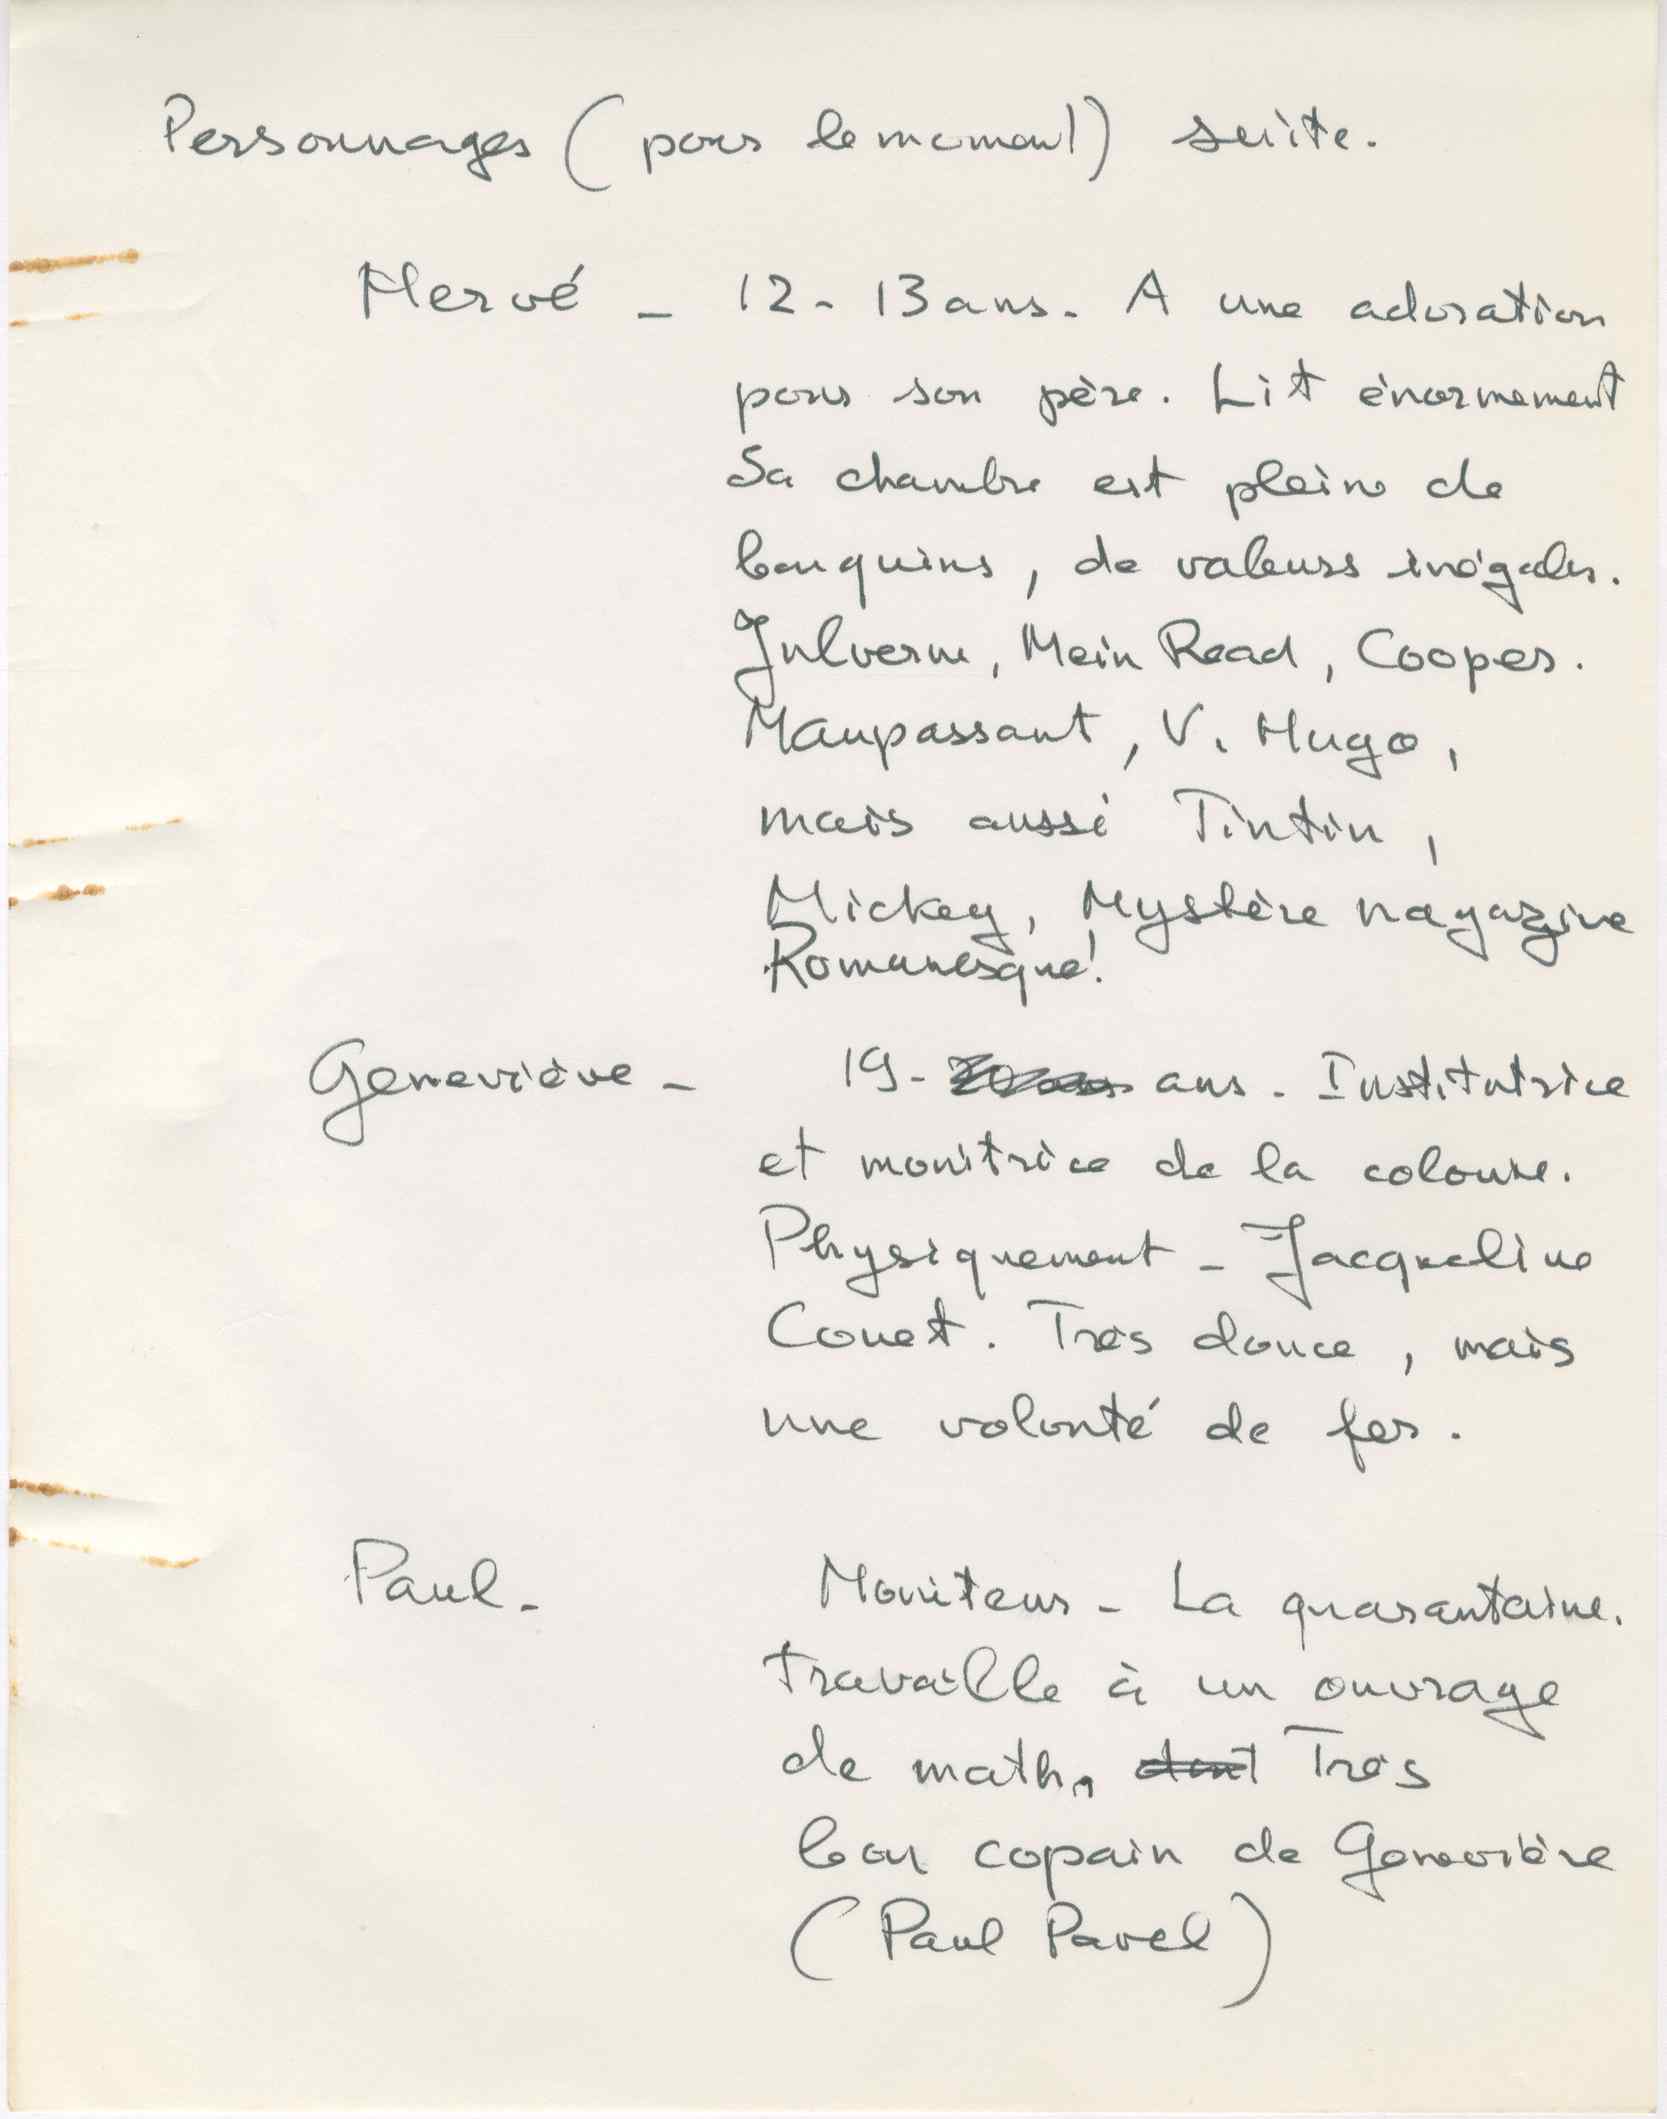 Personnages (pour le moment) suite.
Hervé - 12-13 ans. A une adoration
pour son père. Lit énormement
Sa chambre est pleine de
bouquins, de valeurs inégales.
Julverne, Mein Read, Cooper.
Maupassant, V. Hugo,
mais aussi Tintin,
Mickey, Mystère magazine
Romanesque!
Geneviève - 19- ans. Institutrice
et monitrice de la colonie.
Physiquement - Jacqueline
Couet. Très douce, mais
une volonté de fer.
Paul - Moniteur - La quarantaine.
travaille à un ouvrage
de math, dont Très
bon copain de Geneviève
(Paul Pavel)